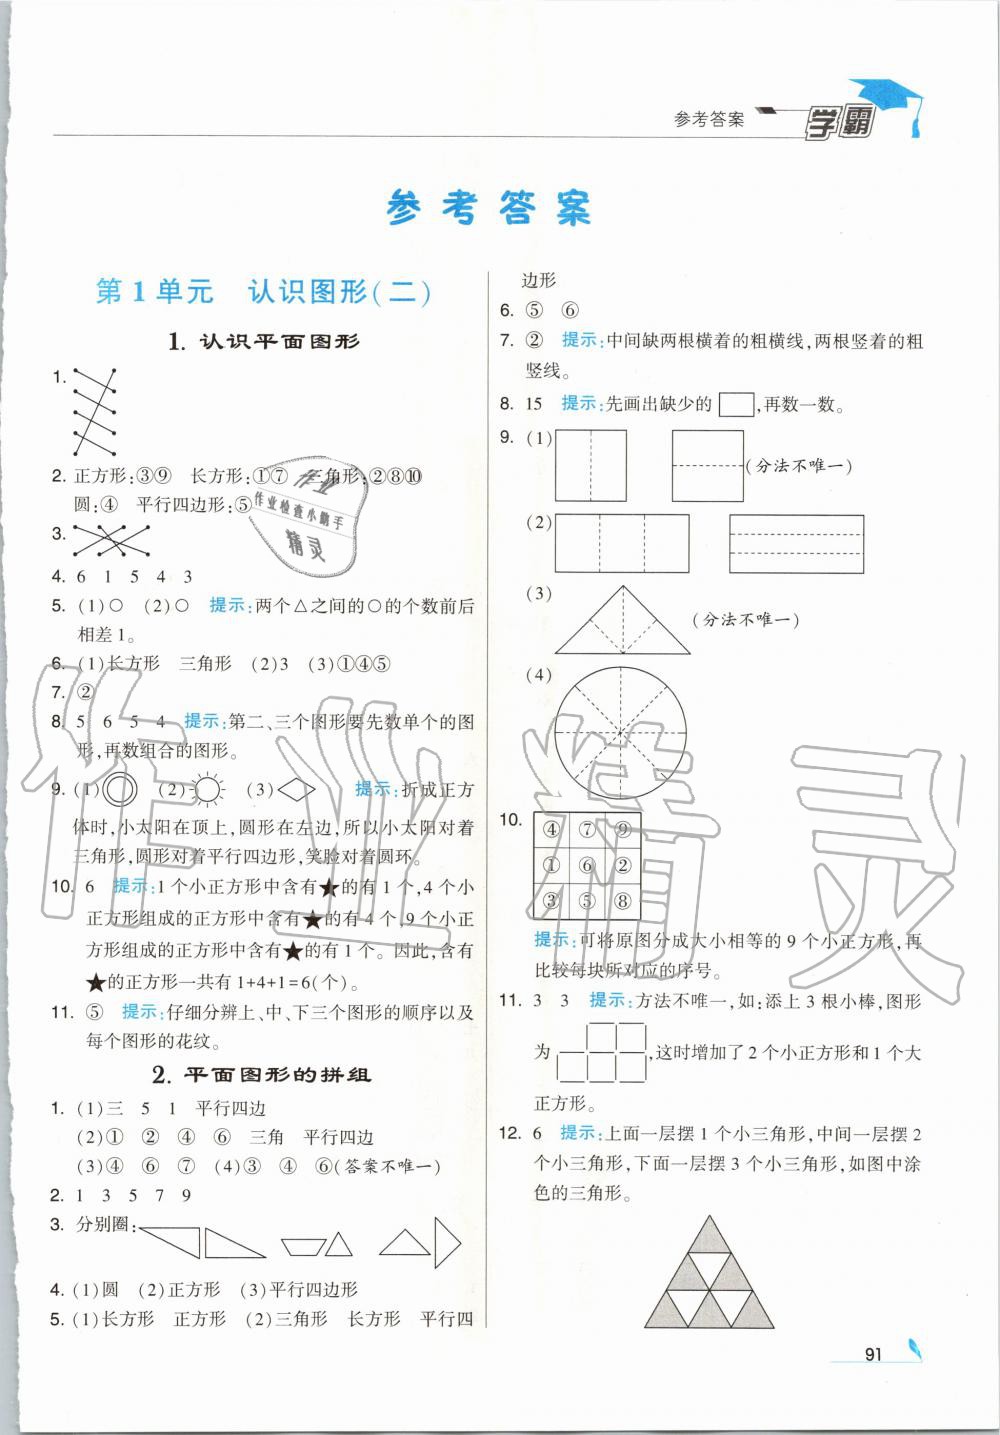 参考答案 学霸
参考答案
第1单元 认识图形(二)
1. 认识平面图形
1.
2. 正方形:③⑨ 长方形:①⑦ 三角形:②⑧⑩
圆:④ 平行四边形:⑤
3.
4. 6 1 5 4 3
5. (1)○ (2)○ 提示:两个△之间的○的个数前后
相差1。
6. (1)长方形 三角形 (2)3 (3)①④⑤
7. ②
8. 5 6 5 4 提示:第二、三个图形要先数单个的图
形,再数组合的图形。
9. (1) (2) (3) 提示:折成正方
体时,小太阳在顶上,圆形在左边,所以小太阳对着
三角形,圆形对着平行四边形,笑脸对着圆环。
10. 6 提示:1个小正方形中含有★的有1个,4个小
正方形组成的正方形中含有★的有4个,9个小正
方形组成的正方形中含有★的有1个。因此,含有
★的正方形一共有1+4+1=6(个)。
11. ⑤ 提示:仔细分辨上、中、下三个图形的顺序以及
每个图形的花纹。
2. 平面图形的拼组
1. (1)三 5 1 平行四边
(2)① ② ④ ⑥ 三角 平行四边
(3)④ ⑥ ⑦ (4)③ ④ ⑥(答案不唯一)
2. 1 3 5 7 9
3. 分别圈:
4. (1)圆 (2)正方形 (3)平行四边形
5. (1)长方形 正方形 (2)三角形 长方形 平行四
边形
6. ⑤ ⑥
7. ② 提示:中间缺两根横着的粗横线,两根竖着的粗
竖线。
8. 15 提示:先画出缺少的□,再数一数。
9. (1) (分法不唯一)
(2)
(3) (分法不唯一)
(4)
10. ④ ⑦ ⑨
① ⑥ ②
③ ⑤ ⑧
提示:可将原图分成大小相等的9个小正方形,再
比较每块所对应的序号。
11. 3 3 提示:方法不唯一,如:添上3根小棒,图形
为 ,这时增加了2个小正方形和1个大
正方形。
12. 6 提示:上面一层摆1个小三角形,中间一层摆2
个小三角形,下面一层摆3个小三角形,如图中涂
色的三角形。
91
作业
作业检查小助手
精灵
作业精灵